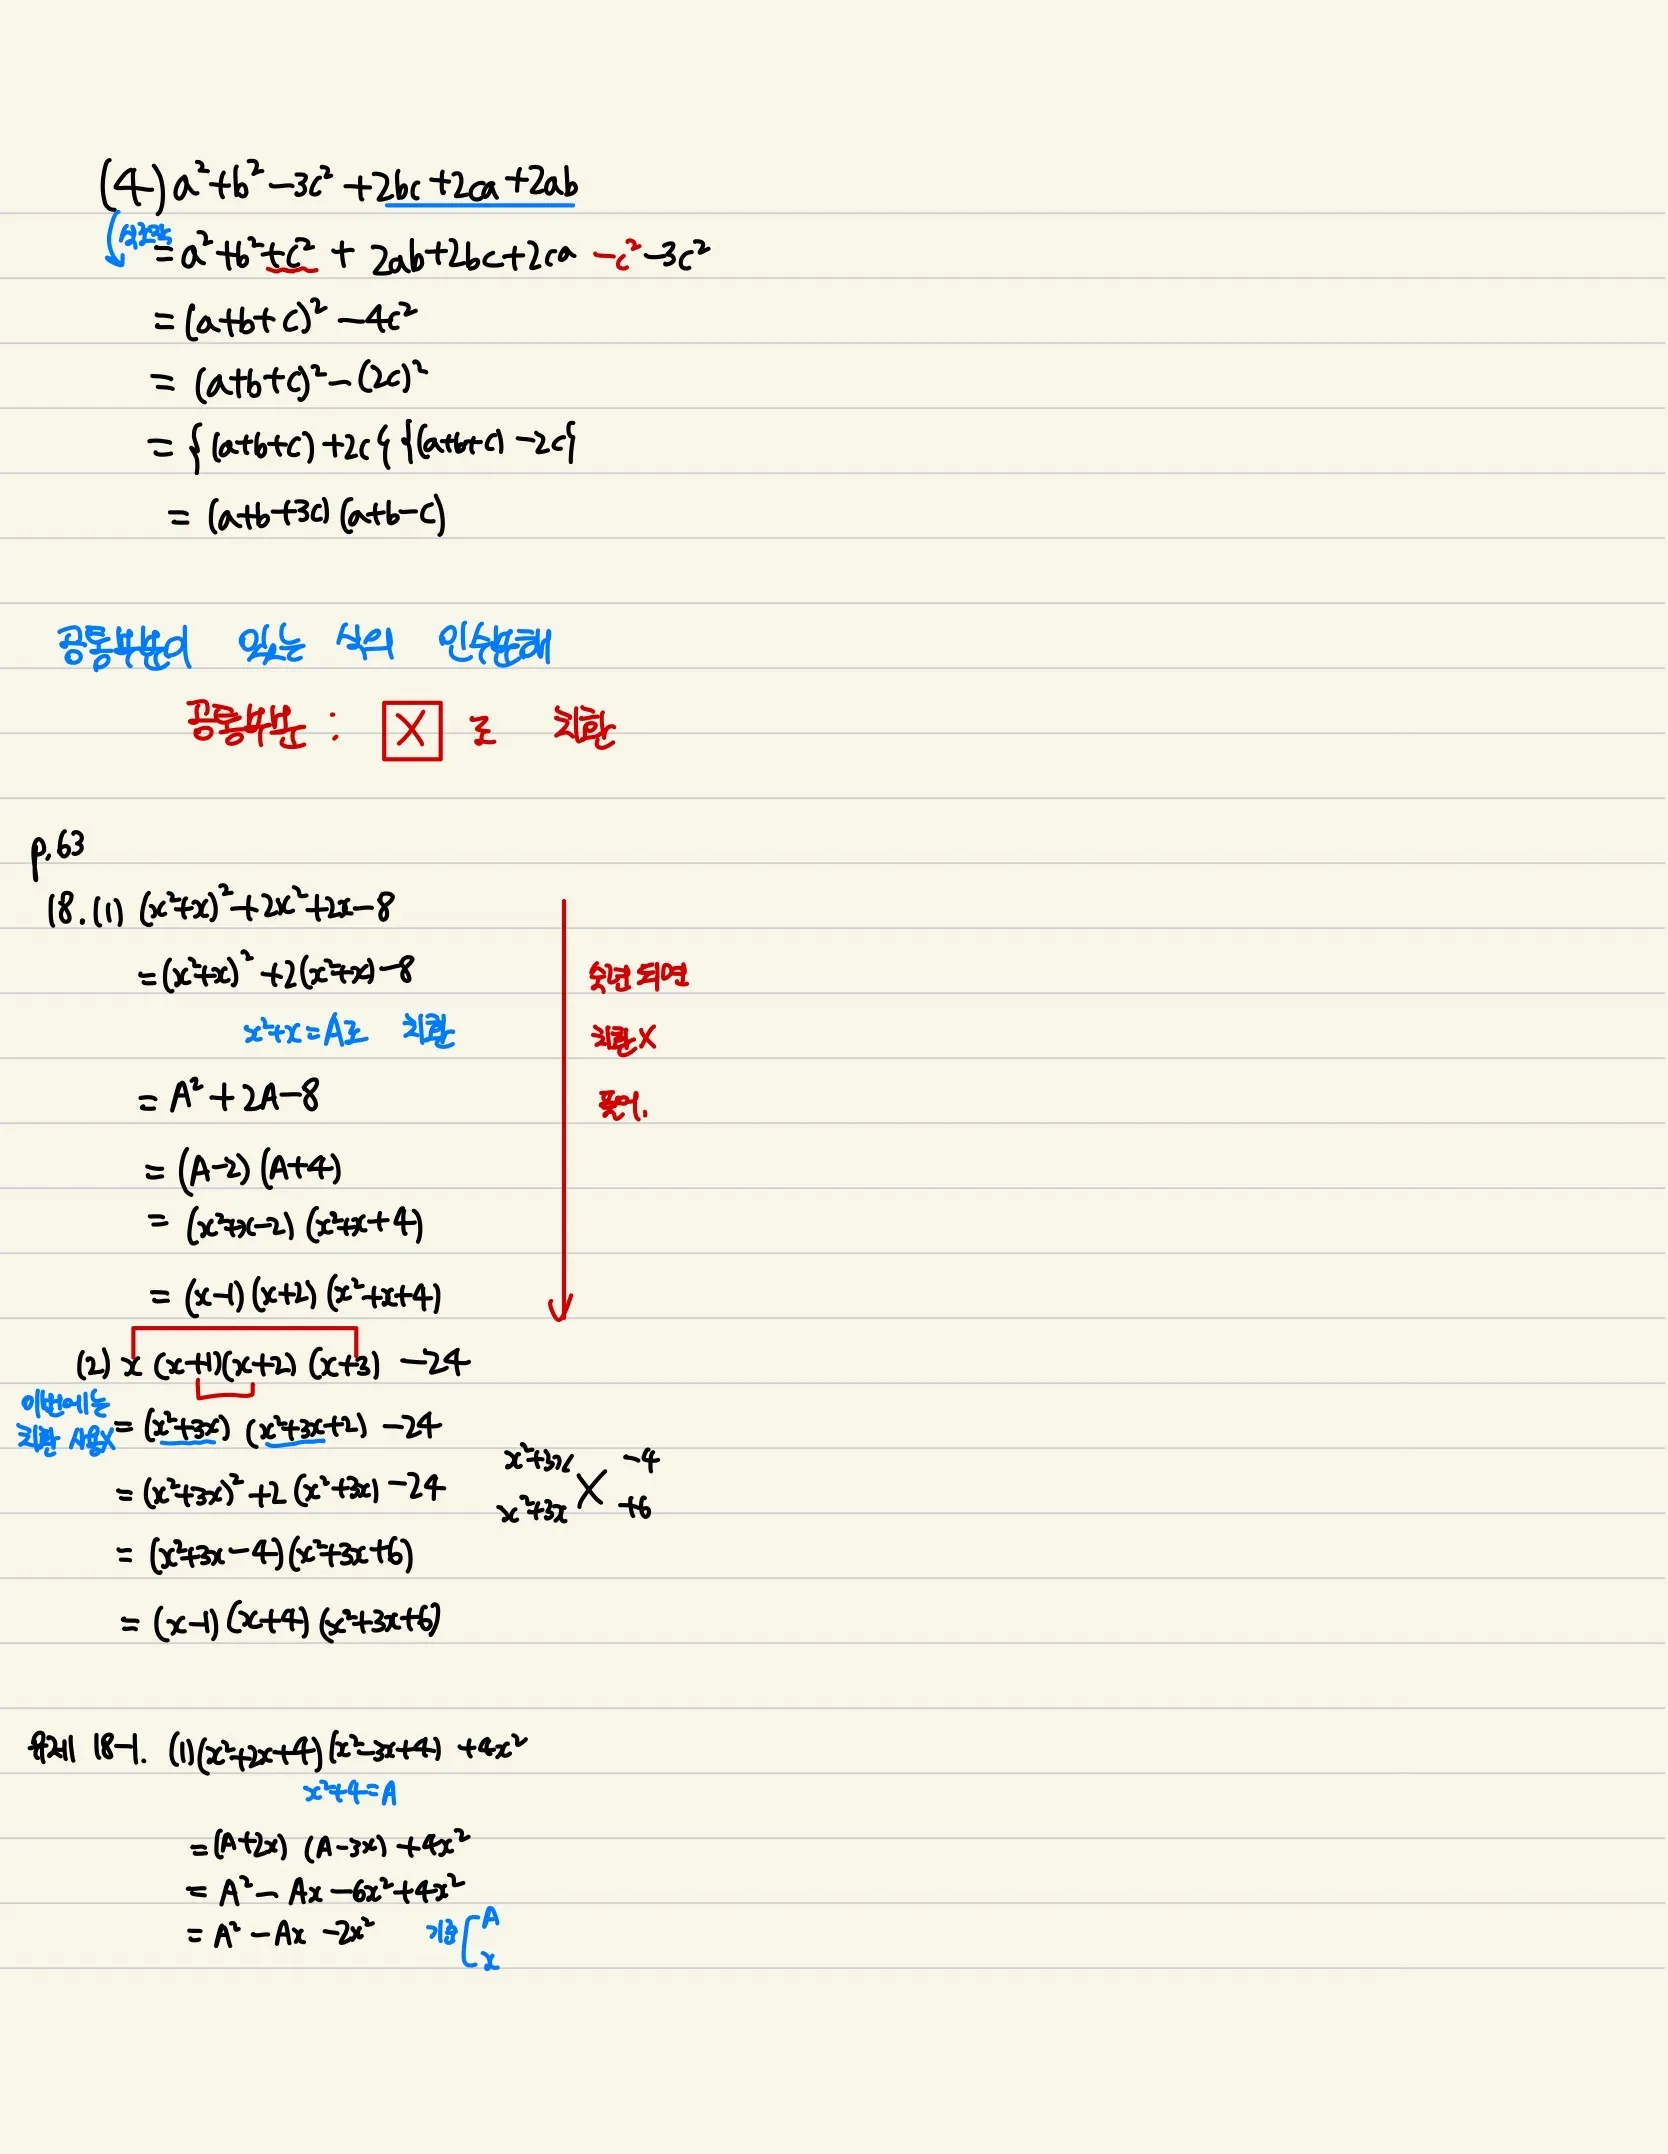 (4) a²+b²-3c²+2bc+2ca+2ab
식조작
= a²+b²+c² + 2ab+2bc+2ca -c²-3c²
= (a+b+c)² -4c²
= (a+b+c)² - (2c)²
= {(a+b+c)+2c}{(a+b+c)-2c}
= (a+b+3c)(a+b-c)
공통부분이 있는 식의 인수분해
공통부분 : X 로 치환
p.63
18. (1) (x²+x)²+2x²+2x-8
= (x²+x)²+2(x²+x)-8
숙련되면
x²+x=A로 치환
치환X
= A²+2A-8
풀이.
= (A-2)(A+4)
= (x²+x-2)(x²+x+4)
= (x-1)(x+2)(x²+x+4)
(2) x(x+1)(x+2)(x+3) -24
이번에는
치환 사용X
= (x²+3x)(x²+3x+2) -24
x²+3x -4
= (x²+3x)²+2(x²+3x) -24
x²+3x +6
= (x²+3x-4)(x²+3x+6)
= (x-1)(x+4)(x²+3x+6)
유제 18-1. (1) (x²+2x+4)(x²-3x+4) +4x²
x²+4=A
= (A+2x)(A-3x) +4x²
= A² - Ax -6x²+4x²
= A² - Ax -2x²
기준 [ A
x